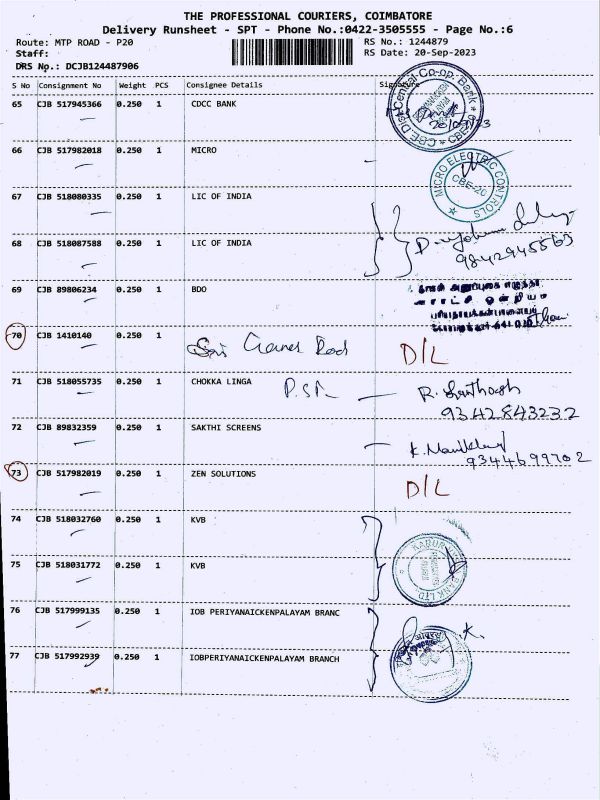 THE PROFESSIONAL COURIERS, COIMBATORE
Delivery Runsheet - SPT - Phone No.:0422-3505555 - Page No.:6
Route: MTP ROAD - P20 RS No.: 1244879
Staff: RS Date: 20-Sep-2023
DRS No.: DCJB124487906
S No Consignment No Weight PCS Consignee Details Signature
65 CJB 517945366 0.250 1 CDCC BANK
20/09/23
66 CJB 517982018 0.250 1 MICRO
MICRO ELECTRIC CONTROLS
CBE-20
67 CJB 518080335 0.250 1 LIC OF INDIA
68 CJB 518087588 0.250 1 LIC OF INDIA
9842945563
69 CJB 89806234 0.250 1 BDO
70 CJB 1410140 0.250 1
D/L
71 CJB 518055735 0.250 1 CHOKKA LINGA
R. Santhosh
9342843232
72 CJB 89832359 0.250 1 SAKTHI SCREENS
9344699702
73 CJB 517982019 0.250 1 ZEN SOLUTIONS
D/L
74 CJB 518032760 0.250 1 KVB
75 CJB 518031772 0.250 1 KVB
76 CJB 517999135 0.250 1 IOB PERIYANAICKENPALAYAM BRANC
77 CJB 517992939 0.250 1 IOBPERIYANAICKENPALAYAM BRANCH